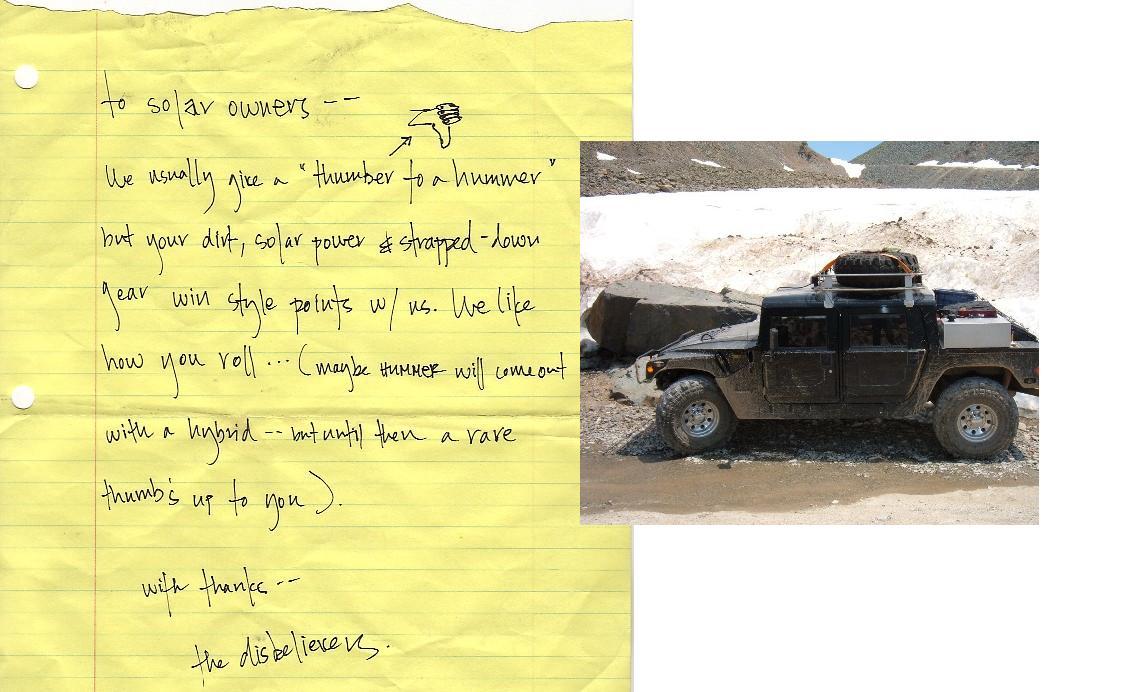 to solar owners --
We usually give a "thumber to a hummer"
but your dirt, solar power & strapped-down
gear win style points w/ us. We like
how you roll... (maybe HUMMER will come out
with a hybrid -- but until then a rare
thumb's up to you).
with thanks --
the disbelievers.